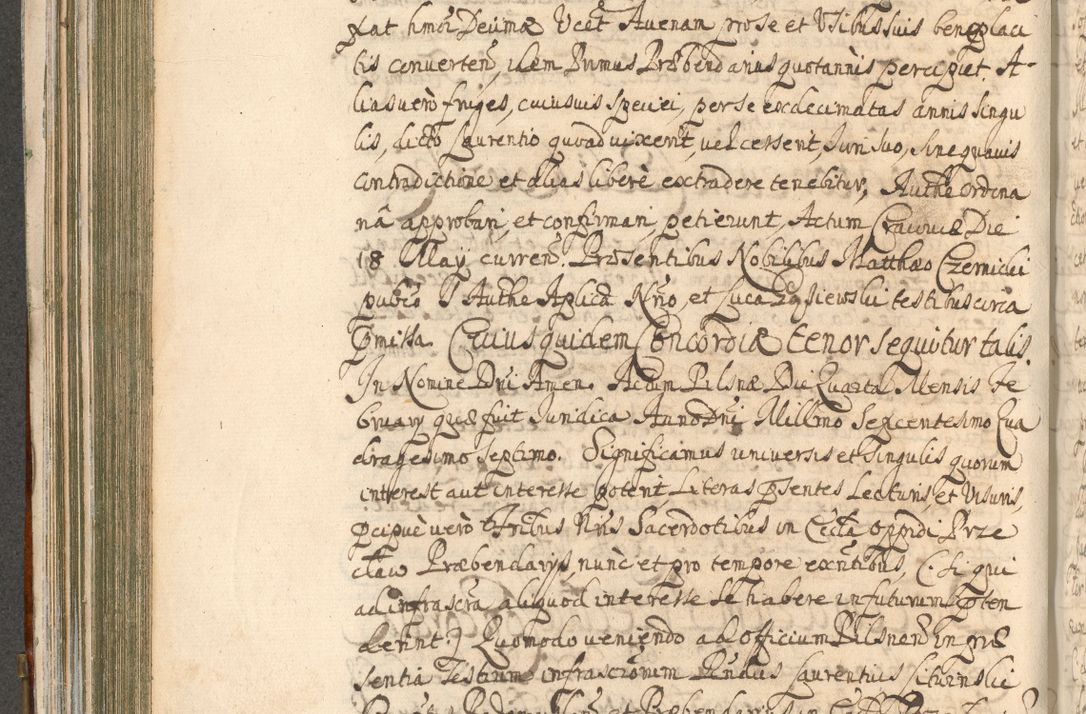 xat hmõi Decimæ Vcet Auenam pro se et Vsibus suis beneplaci
tis converten̄, idem Primus Præbendarius quotannis percipiet. A-
lias vero fruges, cuiusuis speciei, per se exdecimatas annis singu
lis, dicto Laurentio quoad vixerit, vel cesserit, Juri suo, sine quauis
contradictione et alias liberè extradere tenebitur, Authẽ ordina
riâ approbari, et confirmari, petierunt, Actum Cracouiæ Die
18 May curren̄. Præsentibus Nobilibus Matthæo Czernicki
pubco Authẽ Aplica Nrio et Luca testibus circa
Pmissa. Cuius quidem Concordiæ tenor sequitur talis.
In Nomine Dni Amen. Actum Pilsnæ Die Quarta Mensis Fe
bruary quæ fuit Juridica Anno Dni Millmo Sexcentesimo Qua
dragesimo Septimo. Significamus universis et singulis quorum
interest aut interesse poterit Literas Psentes Lecturis, et Visuris,
Pcipuè vero Tribus Nris Sacerdotibus in Eccla oppidi Prze
cław Præbendarys, nunc et pro tempore exntibus, (. si qui
ad infrascra aliquod interesse se habere in futurum Pten
derint.) Quomodo veniendo ad officium Pilsnen̄ in præ
sentia Testium infrascriorum Rndus Laurentius Liturinski
et Præbendarius in